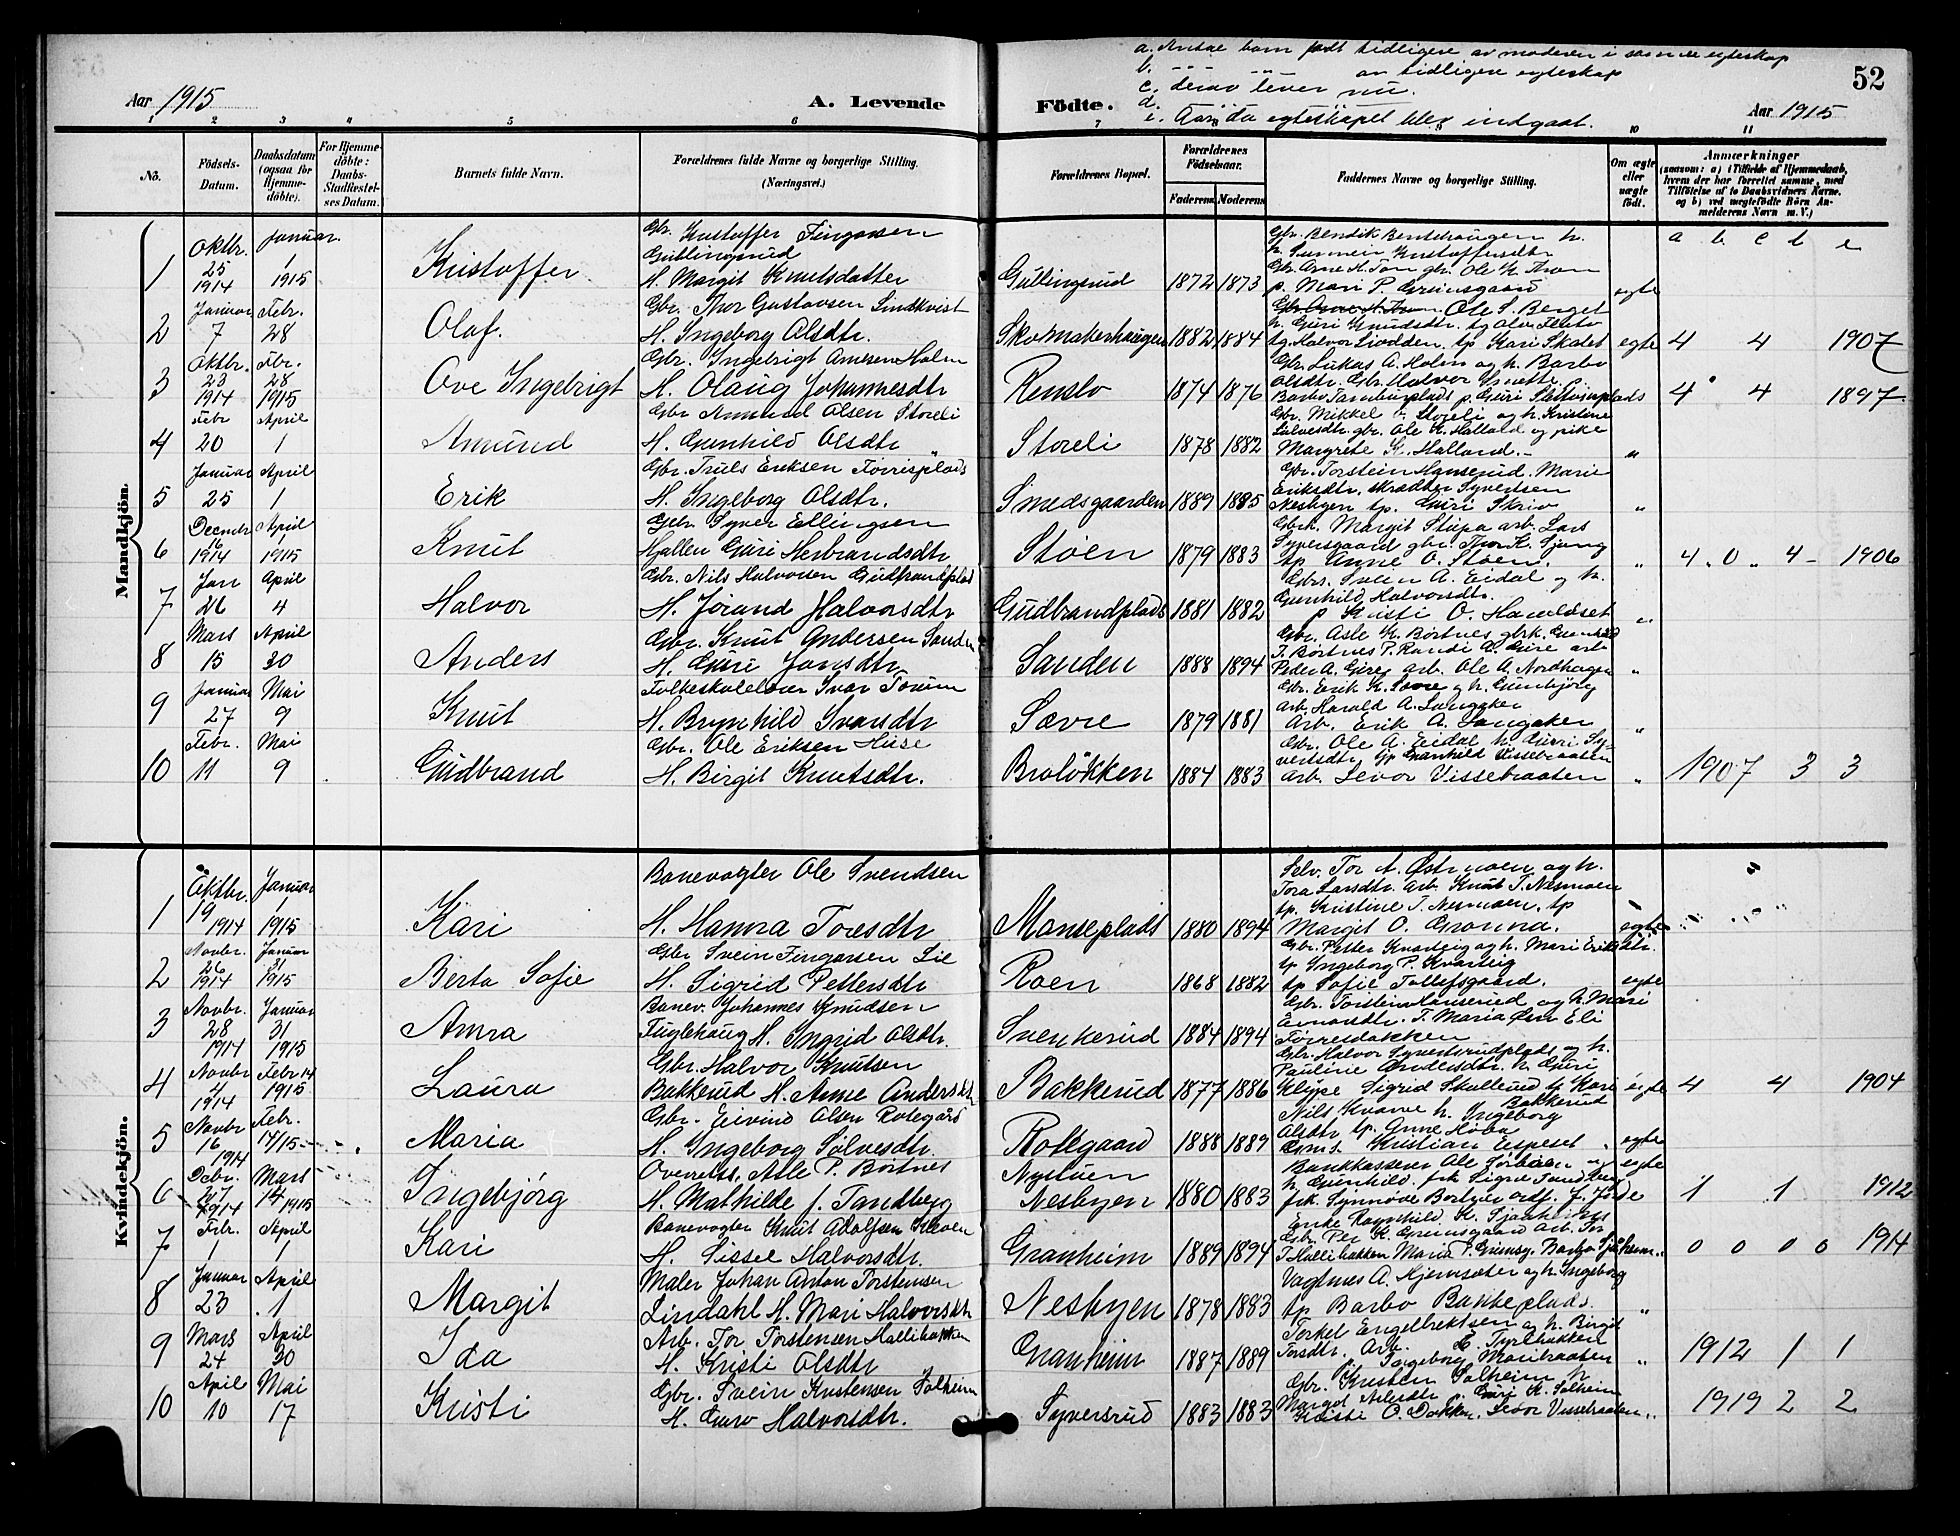 Aar 1915
A. Levende Födte.
a. Antal barn født tidligere av moderen i samme egteskap
b. -"- -"- av tidligere egteskap
c. derav lever nu.
d.
e. Aar da egteskapet blev indgaat.
52
Aar 1915
1 2 3 4 5 6 7 8 9 10 11
Nö.
Födsels-Datum.
Daabsdatum (ogsaa for Hjemmedöbte).
For Hjemmedöbte: Daabs-Stadfæstelses Datum.
Barnets fulde Navn.
Forældrenes fulde Navne og borgerlige Stilling. (Næringsvei.)
Forældrenes Bopæl.
Forældrenes Födselsaar.
Faderens Moderens
Faddernes Navne og borgerlige Stilling.
Om ægte eller uægte födt.
Anmærkninger
(saasom: a) i Tilfælde af Hjemmedaab, hvem der har forrettet samme, med Tilföielse af to Daabsvidners Navne, og b) ved uægtefödte Börn Anmelderens Navn m. V.)
a b c d e
Mandkjön.
1 Oktbr. 25 1914 Januar 1 1915 Kristoffer Gbr. Kristoffer Fingarsen Gullingsrud H. Margit Knutsdatter Gullingsrud 1872 1873 p. Mari P. Grimsgaard egte
2 Januar 7 Febr. 28 Olaf. Gbr. Thor Gustavsen Lindkvist H. Ingeborg Olsdtr. Skomakerhaugen 1882 1884 Ole S. Berget h. Guri Knudsdtr. tp Kari Skalet egte 4 4 1907
3 Oktbr. 23 1914 Febr. 28 1915 Ove Ingebrigt Gbr. Ingebrigt Arnesen Holm H. Olaug Johannesdtr Renslo 1874 1876 Gbr. Lukas A. Holm og h. Barbo Olsdtr. Gbr. Halvor 4 4 1897
4 Febr 20 April 1 Amund Gbr Amund Olsen Storeli H. Gunhild Olsdtr Storeli 1878 1882 Gbr. Mikkel O. Storeli og h. Kristine Sølvesdtr. gbr. Ole K. Halland og pike Margrete K. Halland. "
5 Januar 25 April 1 Erik Gbr. Truls Eriksen Torrisplads H. Ingeborg Olsdtr. Smedsgaarden 1889 1885 Gbr. Torstein Hanserud. Marie Eriksdtr, skrædder Syvertsen Nesbyen tp. Guri Skrivo "
6 Decmbr 16 1914 April 1 1915 Knut Gbr. Syver Ellingsen Hallen Guri Herbrandsdtr Støen 1879 1883 Gbrk. Margit Støpa arb. Lars Syversgaard gbr. Thor K. tp Anne O. Støen. " 4 0 4 - 1906
7 Jan 26 April 4 Halvor Gbr. Nils Halvorsen Gudbrandplads H. Jørand Halvorsdtr Gudbrandplads 1881 1882 Gbr. Svein A. Eidal og h. Gunhild Halvorsdtr. p Kristi O. "
8 Mars 15 April 30 Anders Gbr. Knut Andersen Sanden H. Guri Jonsdtr Sanden 1888 1894 Gbr. Asle K. Børtnes gbrk. Gunhild T. Børtnes P. Randi A. Gire arb Peder A. Gire, arb. Ole A. Nordhagen "
9 Januar 27 Mai 9 Knut Folkeskolelærer Ivar Torum H. Brynhild Ivarsdtr Sævre 1879 1881 Gbr. Erik K. Sævre og h. Gunbjørg arb. Harald A. Langaker Arb. Erik A. Langaker "
10 Febr. 11 Mai 9 Gudbrand Gbr. Ole Eriksen Huse H. Birgit Knutsdtr. Broløkken 1884 1883 Gbr. Ole A. Eidal h. Guri Syvertsdtr. tp Gunhild Vissebraaten arb. Levor Vissebraaten " 1907 3 3
Kvindekjön.
1 Oktbr. 19 1914 Januar 1 1915 Kari Banevogter Ole Svendsen H. Hamra Toresdtr Manseplads 1880 1894 Selv. Tor A. Østmoen og h. Tora Larsdtr. Arb. Knut T. Nesmoen tp. Kristine T. Nesmoen. tp Margit O. Grønna. egte
2 Novbr. 26 1914 Januar 31 1915 Berta Sofie Gbr Svein Fingarsen Lie H. Sigrid Pettersdtr Roen 1868 1882 Gbr. Petter Kvarteig og h. Mari Eriksdtr. tp Ingeborg P. Kvarteig tp Sofie Tollefsgaard. egte
3 Novbr. 28 1914 Januar 31 1915 Anna Banev. Johannes Knudsen Fuglehaug H. Ingrid Olsdtr. Svenkerud 1884 1894 Gbr. Torstein Hanserud og h. Mari Torresdokken
4 Novbr 4 1914 Febr 14 1915 Laura Gbr. Halvor Knutsen Bakkerud H. Anne Andersdtr Bakkerud 1877 1886 Gbr. Halvor Syvertsrudplads og h. Pauline Andersdtr. h. Guri Klype Sigrid Skollerud tp Kari Bakkerud egte 4 4 1904
5 Novbr 16 1914 Febr. 14/15 Maria Gbr. Eivind Olsen Rotegård H. Ingeborg Sølvesdtr. Rotegaard 1888 1889 Nils Kvarve h. Ingeborg Olsdtr tp. Anne Høva Kristian Espeset egte
6 Debr. 27 1914 Mars 14 1915 Ingebjørg Overretss. Asle P. Børtnes H. Mathilde f. Tandberg Nystuen Nesbyen 1880 1883 Bankkasserer Ole h. Gunhild. frk Signe Tandberg frk. Synnøve egte 1 1 1912
7 Febr. 1 April 1 Kari Banevogter Knut Adolfsen H. Sissel Halvorsdtr. Granheim 1889 1894 Enke Ragnhild K. Gbr. Per K. Grimsgaard Arb. Tor T. Hallibakken Maria P. Grimsg. Barbo " 0 0 0 0 1914
8 Januar 23 April 1 Margit Maler Johan Anton Torstensen Lindahl H. Mari Halvorsdtr Nesbyen 1878 1883 A. Hjemsæter og h. Ingeborg tp Barbo Bakkeplads. "
9 Mars 24 April 30 Ida Arb. Tor Torstensen Hallibakken H. Kristi Olsdtr Granheim 1887 1889 Torkel Engelbrektsen og h. Birgit Torsdtr. Arb. E. p. Ingeborg Maribraaten " 1912 1 1
10 April 10 Mai 17 Kristi Gbr. Svein Kristensen Solheim H. Guro Halvorsdtr. Syversrud 1883 1883 Gbr. Kristen Solheim h. Margot p. Guri K. Solheim Kristi O. Dokken. Levor Vissebraaten " 1919 2 2